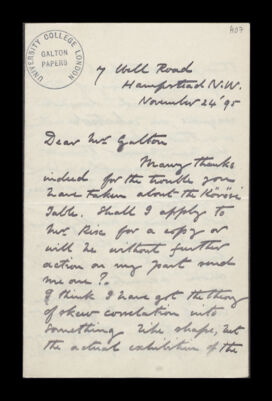 UNIVERSITY COLLEGE LONDON
GALTON
PAPERS
7 Well Road
Hampstead N.W.
November 24 '95
Dear Mr Galton
Many thanks
indeed for the trouble you
have taken about the Körösi
Table. Shall I apply to
Mr Rice for a copy or
will he without further
action on my part send
me one?
I think I have got the theory
of skew correlation into
something like shape, but
the actual exhibition of the